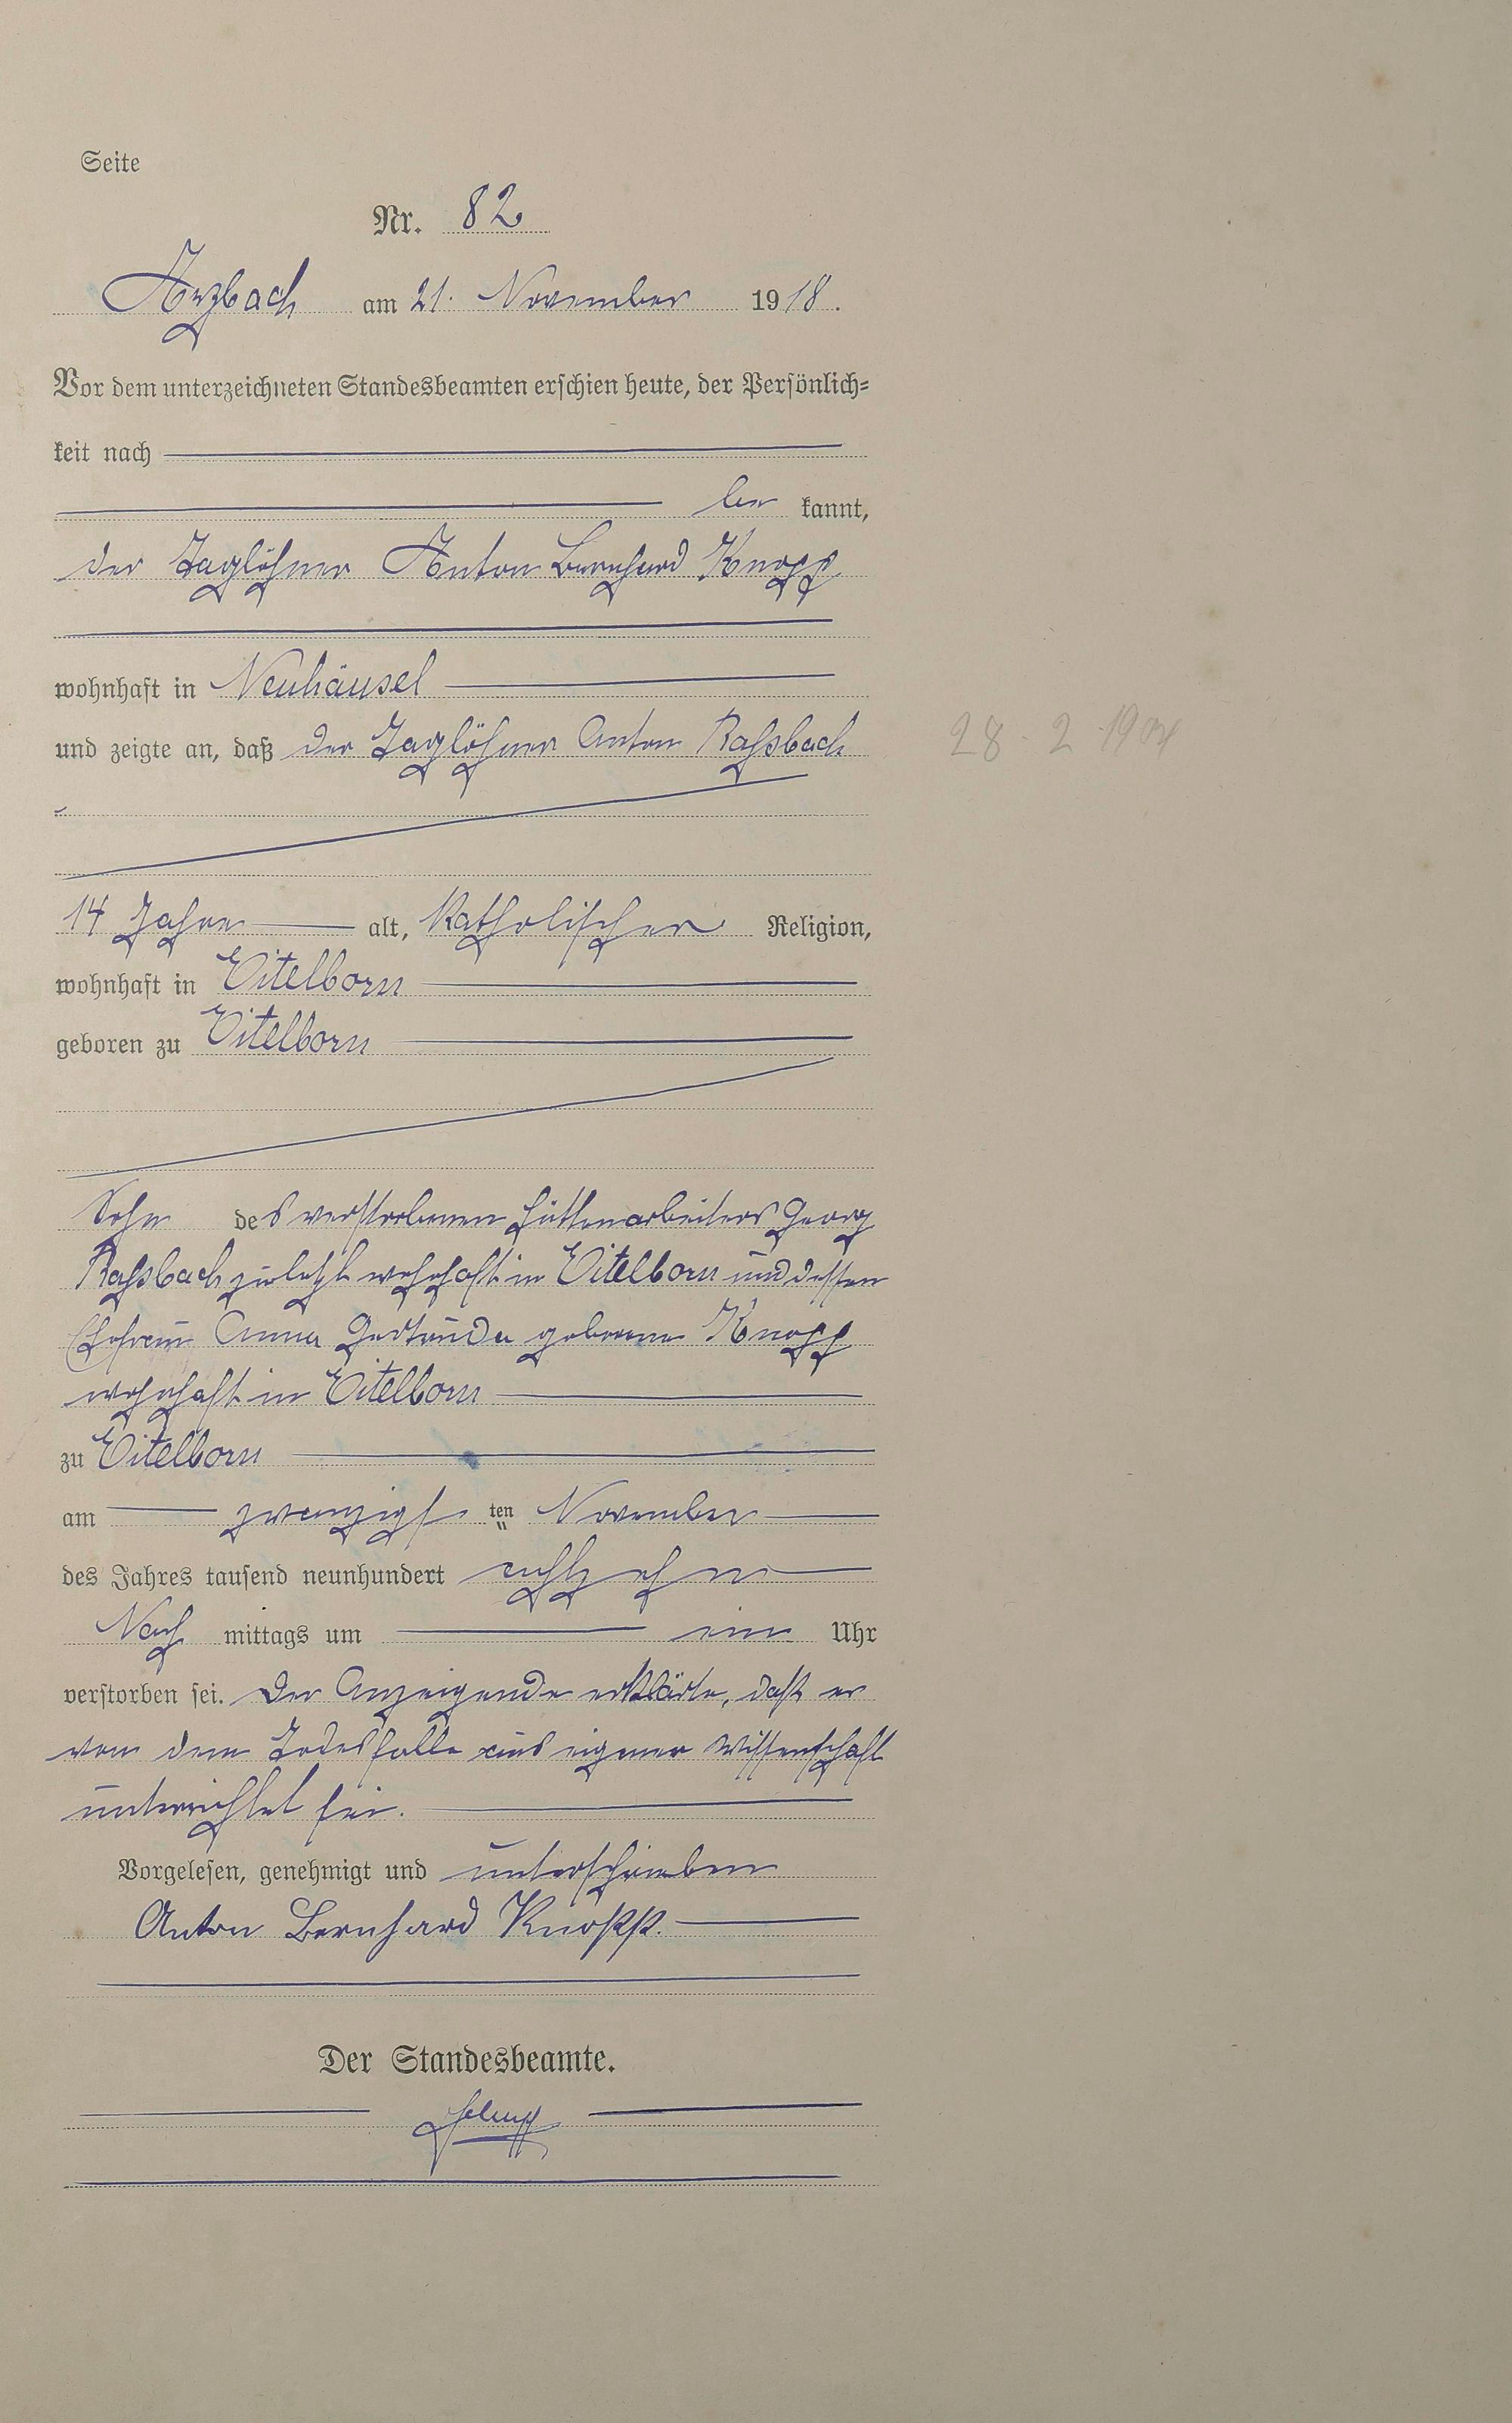 Seite
Nr. 82
Arzbach am 21. November 1918.
Vor dem unterzeichneten Standesbeamten erschien heute, der Persönlich=
keit nach
be kannt,
der Taglöhner Anton Bernhard Knopp
wohnhaft in Neuhäusel
und zeigte an, daß der Taglöhner Anton Rahsbach
28. 2. 1904
14 Jahre alt, katholischer Religion,
wohnhaft in Eitelborn
geboren zu Eitelborn
Sohn des verstorbenen Hüttenarbeiters Georg
Rahsbach zuletzt wohnhaft in Eitelborn und dessen
Ehefrau Anna Gertrude geborene Knopp
wohnhaft in Eitelborn
zu Eitelborn
am zwanzigsten November
des Jahres tausend neunhundert achtzehn
Nach mittags um ein Uhr
verstorben sei. Der Anzeigende erklärte, daß er
von dem Todesfalle aus eigener Wissenschaft
unterrichtet sei.
Vorgelesen, genehmigt und unterschrieben
Anton Bernhard Knopp.
Der Standesbeamte.